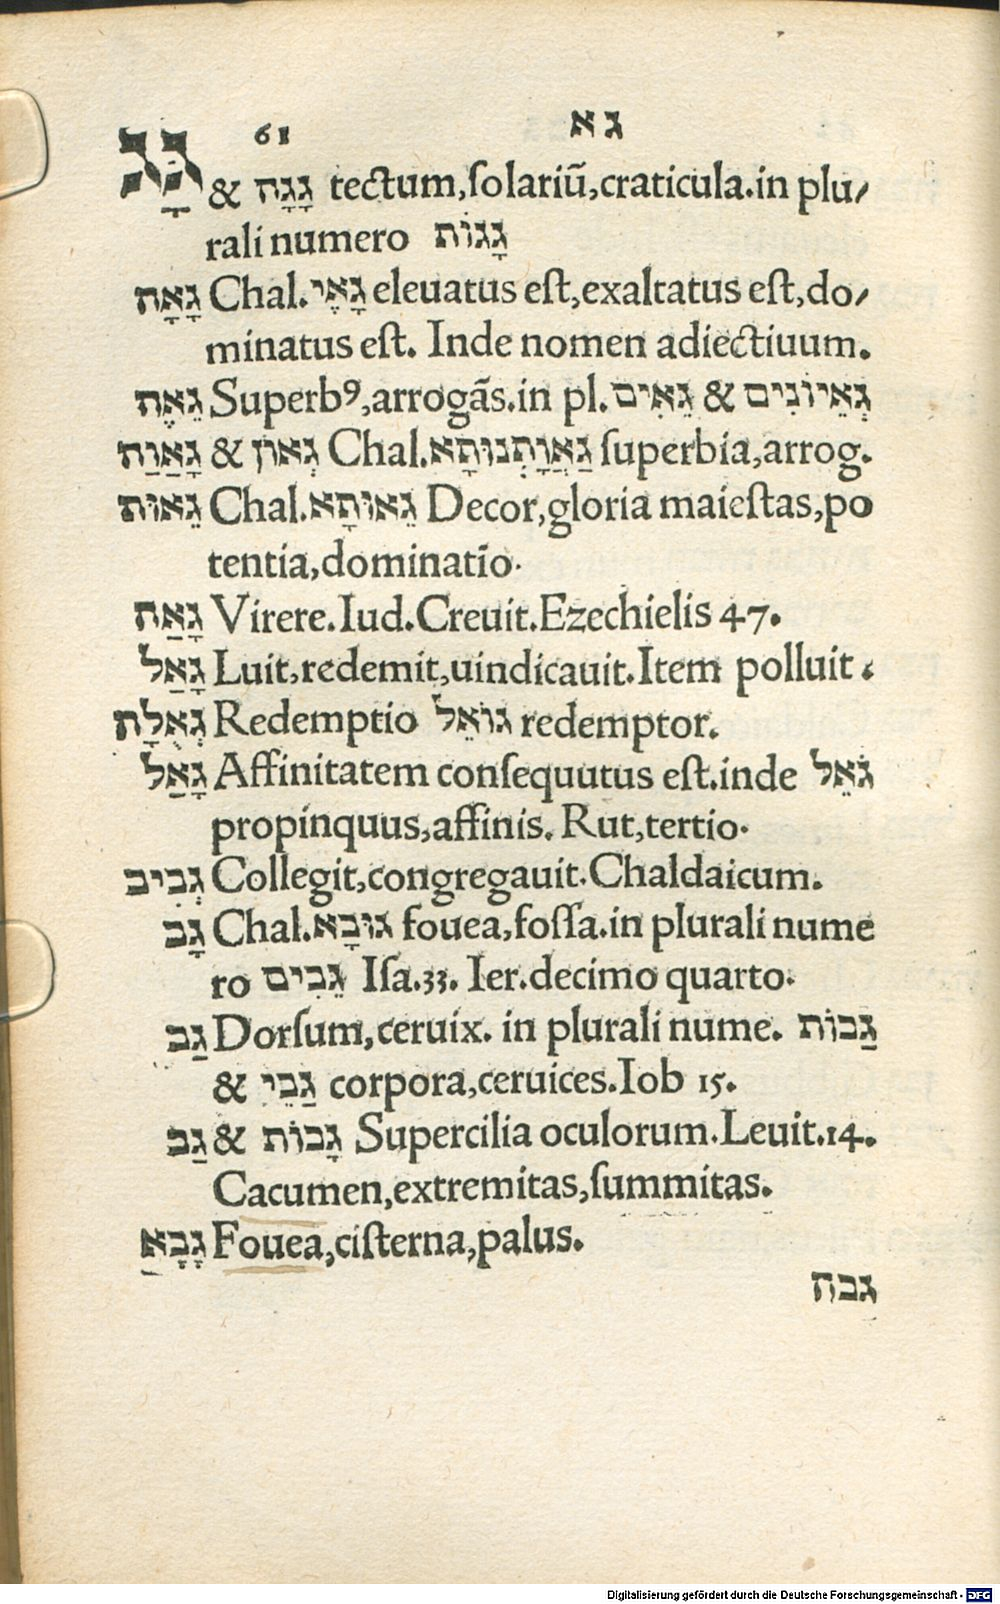 61 גא
גָּג & גָגָה tectum,ſolariũ,craticula.in plu/
rali numero גָגוֹת
גָאָה Chal.גָאֶי eleuatus eſt,exaltatus eſt,do/
minatus eſt. Inde nomen adiectiuum.
גֵאֶה Superbꝰ,arrogãs.in pl.גֵאִים & גְאֵיוֹנִים
גַאֲוַה & גְאוֹן Chal.גַאֲוָתְנוּתָא ſuperbia,arrog.
גֵאוּת Chal.גֵאוּתָא Decor,gloria maieſtas,po
tentia,dominatĩo.
גָאַה Virere.Iud.Creuit.Ezechielis 47.
גָאַל Luit,redemit,uindicauit.Item polluit.
גְאֻלָה Redemptio גוֹאֵל redemptor.
גָאַל Affinitatem conſequutus eſt.inde גֹאֵל
propinquus,affinis. Rut,tertio.
גְבִיב Collegit,congregauit.Chaldaicum.
גָב Chal.גוּבָא fouea,foſſa.in plurali nume
ro גֵבִים Iſa.33. Ier.decimo quarto.
גַב Dorſum,ceruix. in plurali nume. גַבוֹת
& גַבֵי corpora,ceruices.Iob 15.
גַב & גָבוֹת Supercilia oculorum.Leuit.14.
Cacumen,extremitas,ſummitas.
גָבָא Fouea,ciſterna,palus.
גבה